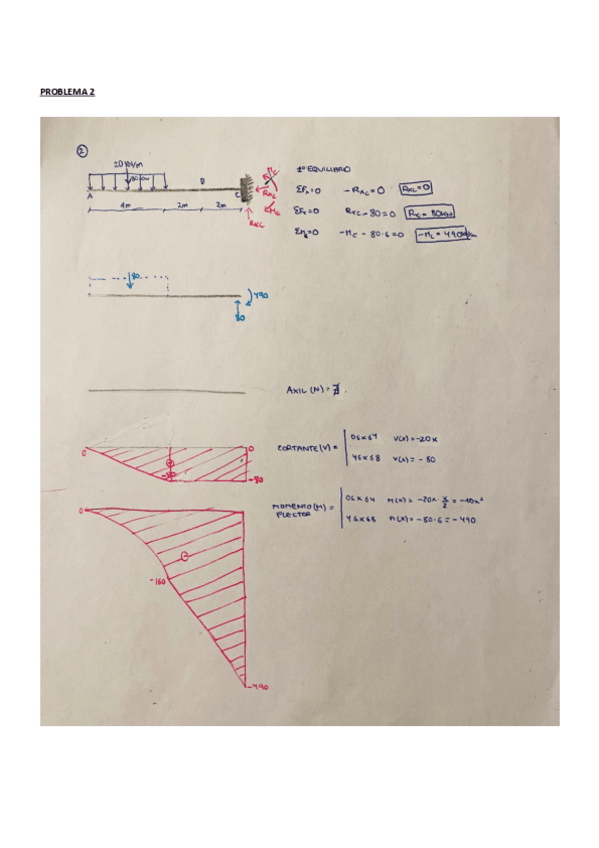 PROBLEMA 2
②
20 kN/m
80 kN
A
B
C
4m 2m 2m
Mc
RxC
RyC
1º EQUILIBRIO
ΣFx=0 -RxC=0 RxC=0
ΣFy=0 RyC-80=0 RyC=80kN
-Mc - 80·6=0
80
490
80
AXIL (N) = ∄
CORTANTE (V) =
0≤x≤4 V(x)=-20x
4≤x≤8 V(x)=-80
0
0
-80
-80
MOMENTO (M) =
FLECTOR
0≤x≤4 M(x)=-20x·x/2=-10x²
4≤x≤8 M(x)=-80·6=-490
0
-160
-490